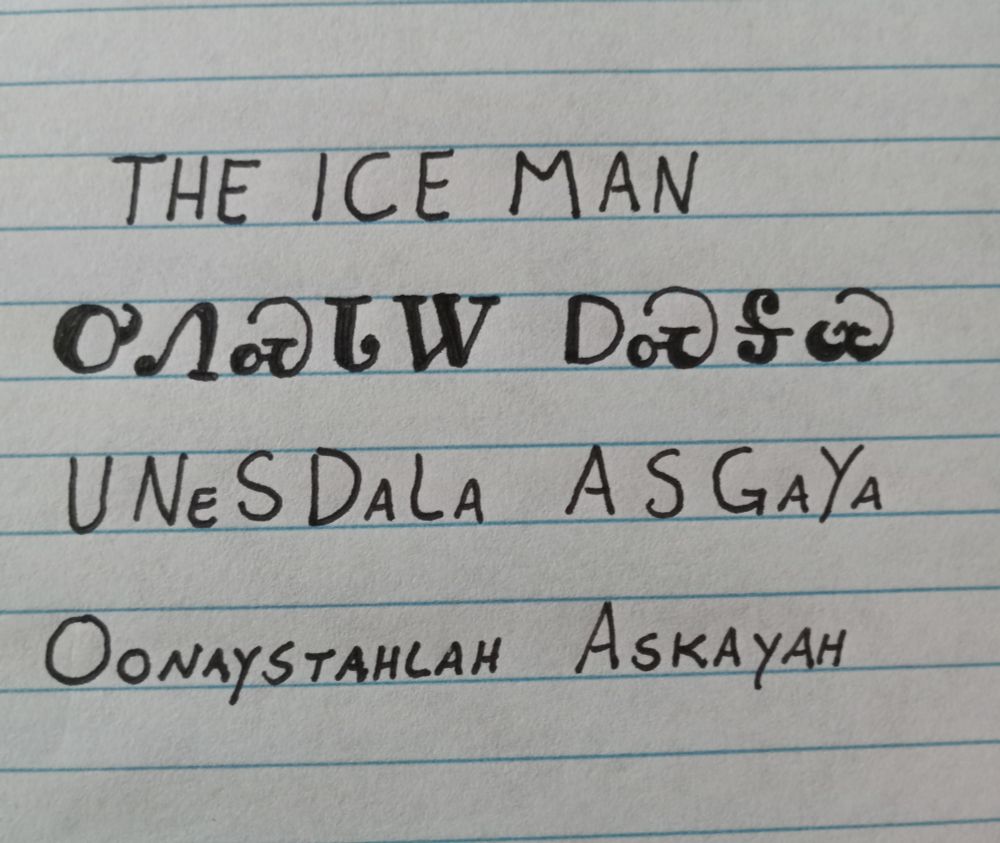 THE ICE MAN
ᎤᏁᏍᏓᎳ ᎠᏍᎦᏯ
UNeSDaLa ASGaYa
Oonaystahlah Askayah